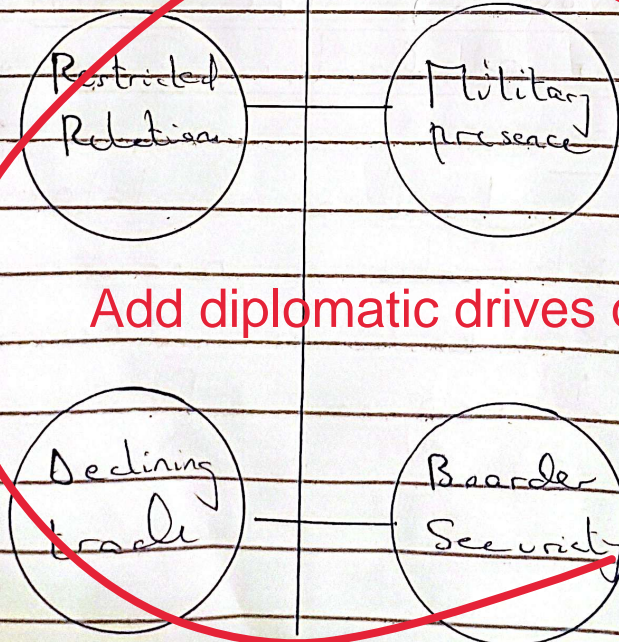 Restricted
Relation
Military
presence
Add diplomatic drives
Declining
trade
Boarder
Security